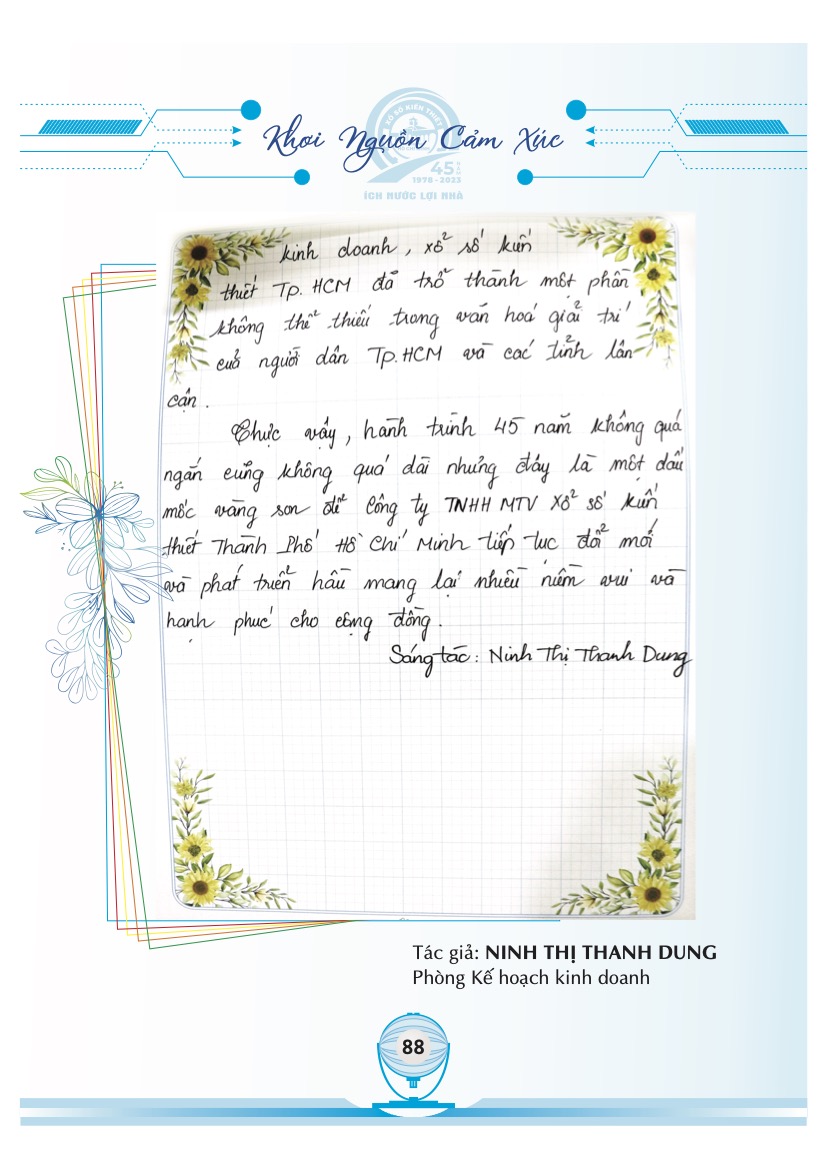 XỔ SỐ KIẾN THIẾT
Khơi Nguồn Cảm Xúc
45 NĂM
1978 - 2023
ÍCH NƯỚC LỢI NHÀ
kinh doanh, xổ số kiến
thiết Tp. HCM đã trở thành một phần
không thể thiếu trong văn hoá giải trí
của người dân Tp.HCM và các tỉnh lân
cận.
Thực vậy, hành trình 45 năm không quá
ngắn cũng không quá dài nhưng đây là một dấu
mốc vàng son để Công ty TNHH MTV Xổ số kiến
thiết Thành Phố Hồ Chí Minh tiếp tục đổi mới
và phát triển hầu mang lại nhiều niềm vui và
hạnh phúc cho cộng đồng.
Sáng tác: Ninh Thị Thanh Dung
Tác giả: NINH THỊ THANH DUNG
Phòng Kế hoạch kinh doanh
88